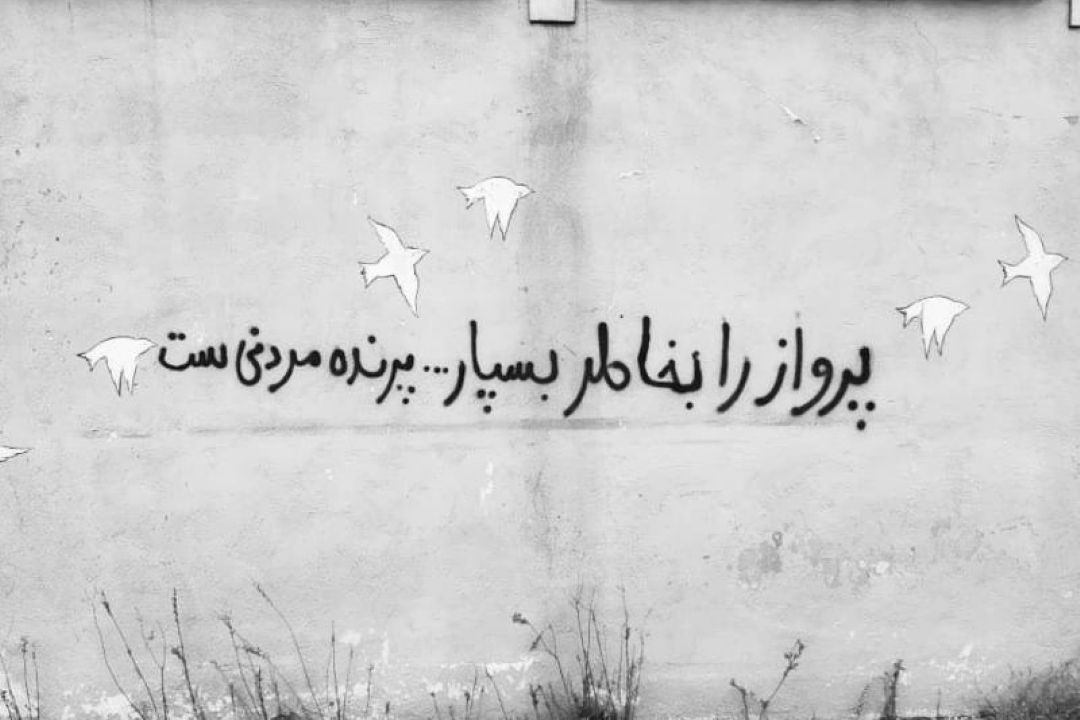 پرواز را بخاطر بسپار... پرنده مردنی ست